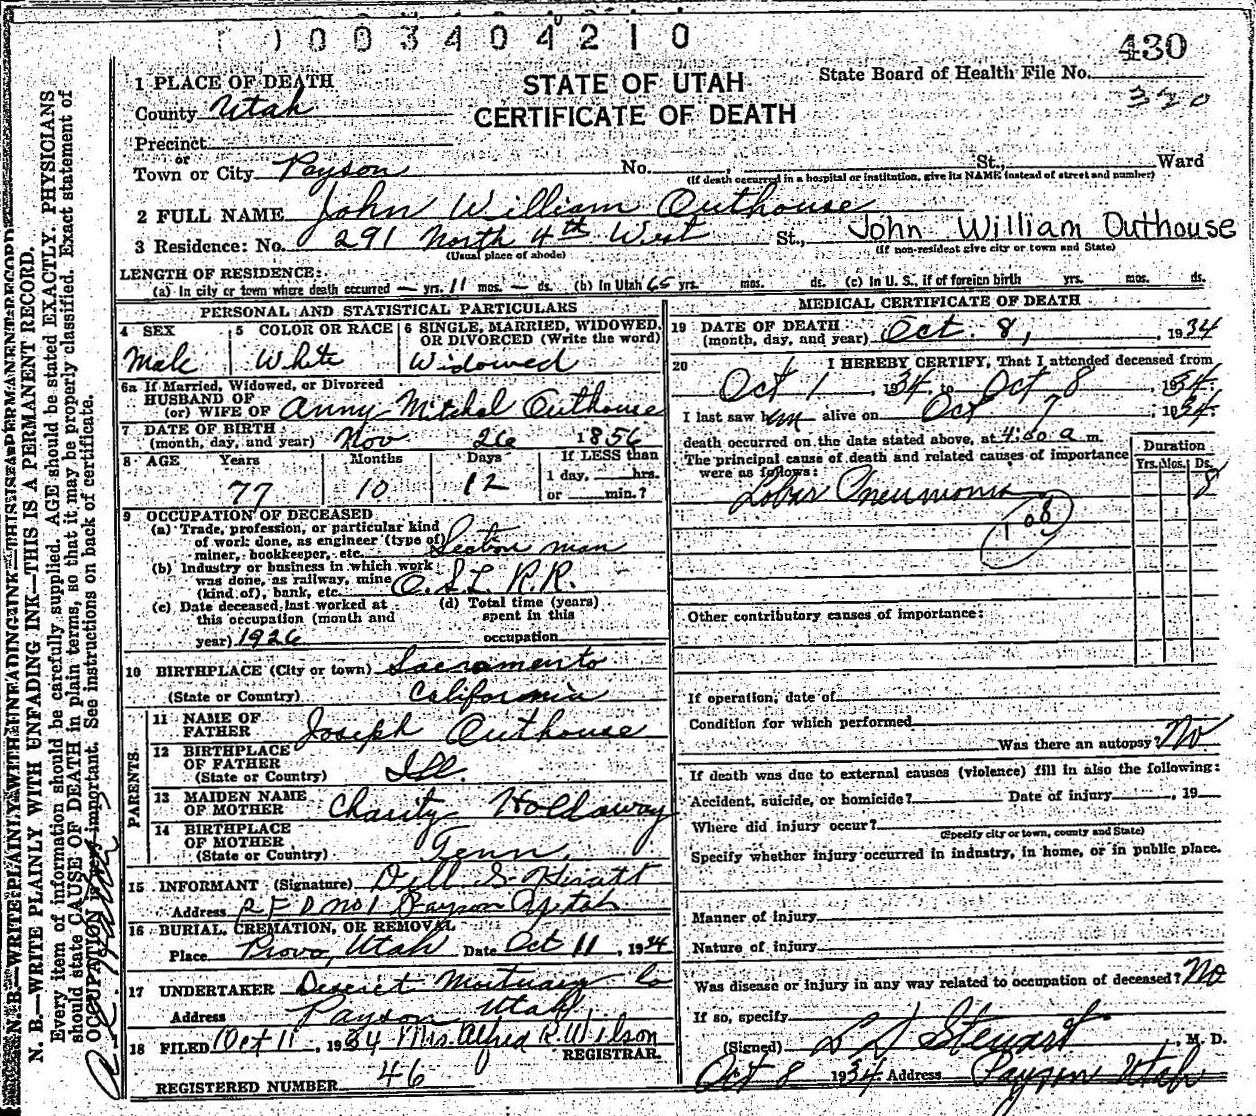 003404210
430
State Board of Health File No.
320
STATE OF UTAH
CERTIFICATE OF DEATH
1 PLACE OF DEATH
County Utah
Precinct
or
Town or City Payson No. St., Ward
(If death occurred in a hospital or institution, give its NAME instead of street and number)
2 FULL NAME John William Outhouse
3 Residence: No. 291 North 4th West St., John William Outhouse
(Usual place of abode) (If non-resident give city or town and State)
LENGTH OF RESIDENCE:
(a) In city or town where death occurred — yrs. 11 mos. — ds. (b) In Utah 65 yrs. mos. ds. (c) In U. S., if of foreign birth yrs. mos. ds.
PERSONAL AND STATISTICAL PARTICULARS
4 SEX
Male
5 COLOR OR RACE
White
6 SINGLE, MARRIED, WIDOWED, OR DIVORCED (Write the word)
Widowed
6a If Married, Widowed, or Divorced
HUSBAND OF
(or) WIFE OF Anny Mitchel Outhouse
7 DATE OF BIRTH
(month, day, and year) Nov 26 1856
8 AGE Years Months Days If LESS than
1 day, hrs.
77 10 12 or min.?
9 OCCUPATION OF DECEASED
(a) Trade, profession, or particular kind
of work done, as engineer (type of)
miner, bookkeeper, etc. Section man
(b) Industry or business in which work
was done, as railway, mine
(kind of), bank, etc. O.S.L. R.R.
(c) Date deceased last worked at
this occupation (month and
year) 1926
(d) Total time (years)
spent in this
occupation
10 BIRTHPLACE (City or town) Sacramento
(State or Country) California
PARENTS
11 NAME OF
FATHER Joseph Outhouse
12 BIRTHPLACE
OF FATHER
(State or Country) Ill.
13 MAIDEN NAME
OF MOTHER Charity Holdaway
14 BIRTHPLACE
OF MOTHER
(State or Country) Tenn.
15 INFORMANT (Signature) Dell S. Hiatt
Address R F D no 1 Payson Utah
16 BURIAL, CREMATION, OR REMOVAL
Place Provo, Utah Date Oct 11, 1934
17 UNDERTAKER Deseret Mortuary Co
Address Payson Utah
18 FILED Oct 11, 1934 Mrs. Alfred R. Wilson
REGISTRAR.
REGISTERED NUMBER 46
MEDICAL CERTIFICATE OF DEATH
19 DATE OF DEATH
(month, day, and year) Oct. 8, 1934
20 I HEREBY CERTIFY, That I attended deceased from
Oct 1 1934. to Oct 8, 1934.
I last saw him alive on Oct 7, 1934.
death occurred on the date stated above, at 4:00 a m.
The principal cause of death and related causes of importance
were as follows:
Duration
Yrs. Mos. Ds.
Lobar Pneumonia 8
108
Other contributory causes of importance:
If operation, date of
Condition for which performed
Was there an autopsy? No
If death was due to external causes (violence) fill in also the following:
Accident, suicide, or homicide? Date of injury , 19
Where did injury occur?
(Specify city or town, county and State)
Specify whether injury occurred in industry, in home, or in public place.
Manner of injury
Nature of injury
Was disease or injury in any way related to occupation of deceased? No
If so, specify
(Signed) L D Stewart, M. D.
Oct 8 1934. Address Payson Utah
N. B.—WRITE PLAINLY WITH UNFADING INK—THIS IS A PERMANENT RECORD
N. B.—WRITE PLAINLY WITH UNFADING INK—THIS IS A PERMANENT RECORD.
Every item of information should be carefully supplied. AGE should be stated EXACTLY. PHYSICIANS
should state CAUSE OF DEATH in plain terms, so that it may be properly classified. Exact statement of
OCCUPATION is very important. See instructions on back of certificate.